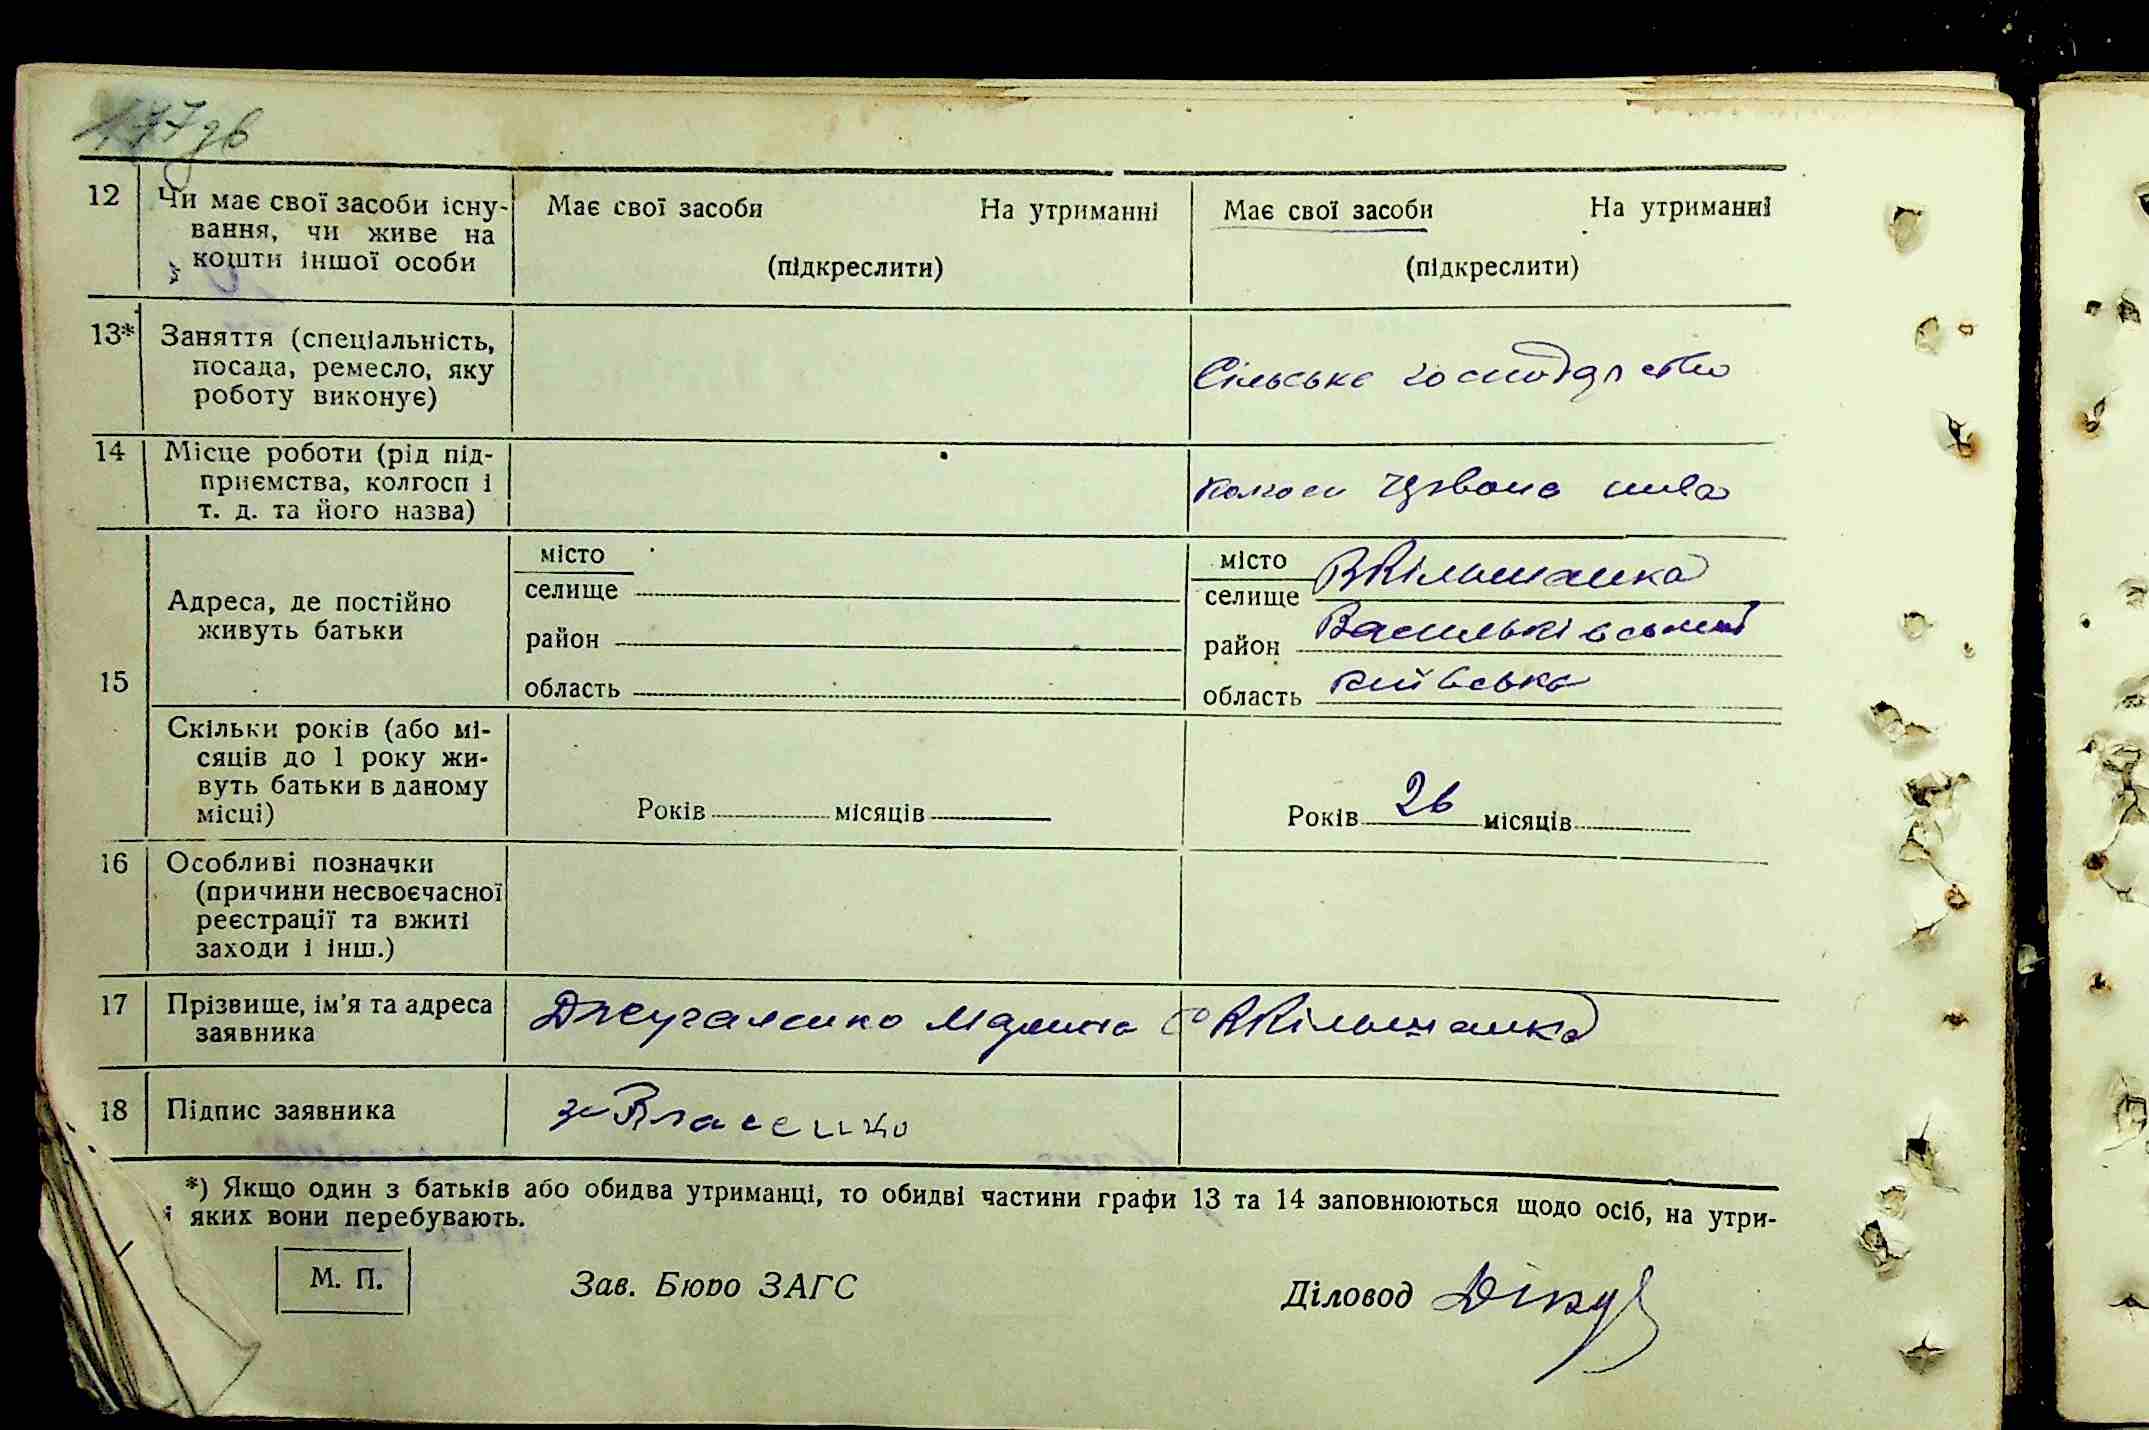 177 зв
12 Чи має свої засоби існу-
вання, чи живе на
кошти іншої особи
Має свої засоби На утриманні
(підкреслити)
Має свої засоби На утриманні
(підкреслити)
13* Заняття (спеціальність,
посада, ремесло, яку
роботу виконує)
Сільське господарство
14 Місце роботи (рід під-
приємства, колгосп і
т. д. та його назва)
колгосп червона нива
15 Адреса, де постійно
живуть батьки
місто
селище
район
область
місто
селище ВВільшанка
район Васильківський
область київська
Скільки років (або мі-
сяців до 1 року жи-
вуть батьки в даному
місці)
Років місяців
Років 26 місяців
16 Особливі позначки
(причини несвоєчасної
реєстрації та вжиті
заходи і інш.)
17 Прізвище, ім'я та адреса
заявника
Марина с ВВільшанка
18 Підпис заявника
за Власенко
*) Якщо один з батьків або обидва утриманці, то обидві частини графи 13 та 14 заповнюються щодо осіб, на утри-
і яких вони перебувають.
М. П.
Зав. Бюро ЗАГС
Діловод